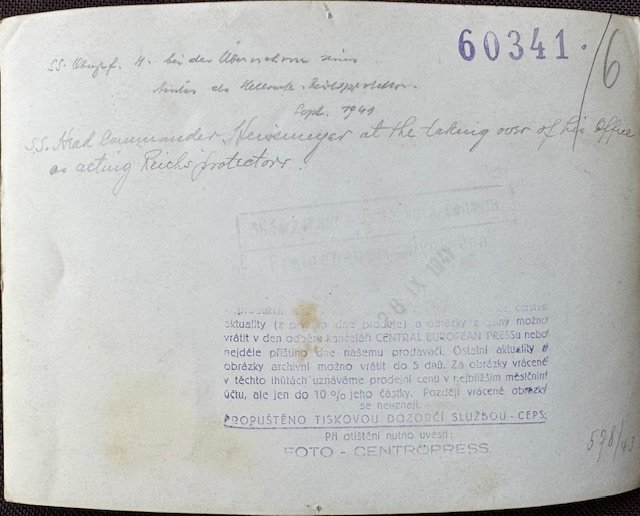 60341.
6
SS-Obergrf. H. bei der Übernahme seines
Amtes als stellvertr. Reichsprotektor.
Sept. 1941
S.S. Head Commander Heissmeyer at the taking over of his Office
as acting Reichs protectors.
28 IX 1941
aktuality (z prvního dne prodeje) a obrázky z ciziny možno
vrátit v den odběru kanceláři CENTRAL EUROPEAN PRESSu nebo
nejdéle příštího dne našemu prodavači. Ostatní aktuality a
obrázky archivní možno vrátit do 5 dnů. Za obrázky vrácené
v těchto lhůtách uznáváme prodejní cenu v nejbližším měsíčním
účtu, ale jen do 10 % jeho částky. Později vrácené obrázky
se neuznají.
PROPUŠTĚNO TISKOVOU DOZORČÍ SLUŽBOU - CEPS.
Při otištění nutno uvésti:
FOTO - CENTROPRESS.
578/43